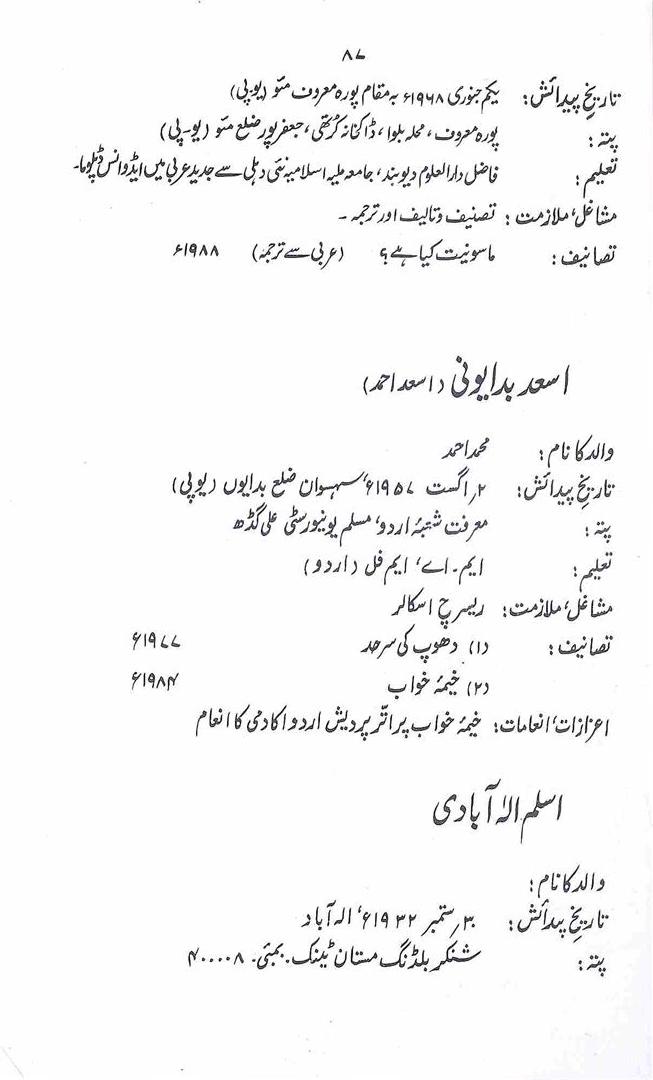 ۸۷
تاریخِ پیدائش: یکم جنوری ۱۹۶۸ء بہ مقام پورہ معروف مئو (یوپی)
پتہ: پورہ معروف، محلہ بلوا، ڈاکخانہ کرُتھی، جعفرپور ضلع مئو (یو۔پی)
تعلیم: فاضل دارالعلوم دیوبند، جامعہ ملیہ اسلامیہ نئی دہلی سے جدید عربی میں ایڈوانس ڈپلوما۔
مشاغل، ملازمت: تصنیف و تالیف اور ترجمہ ۔
تصانیف: ماسونیت کیا ہے؟ (عربی سے ترجمہ) ۱۹۸۸ء
اسعد بدایونی (اسعد احمد)
والد کا نام: محمد احمد
تاریخِ پیدائش: ۲؍ اگست ۱۹۵۷ء، سہسوان ضلع بدایوں (یوپی)
پتہ: معرفت شعبۂ اردو، مسلم یونیورسٹی علی گڈھ
تعلیم: ایم۔اے، ایم فل (اردو)
مشاغل، ملازمت: ریسرچ اسکالر
تصانیف: (۱) دھوپ کی سرحد ۱۹۷۷ء
(۲) خیمۂ خواب ۱۹۸۴ء
اعزازات، انعامات: خیمۂ خواب پر اترّ پردیش اردو اکادمی کا انعام
اسلم الہٰ آبادی
والد کا نام:
تاریخِ پیدائش: ۳۰؍ ستمبر ۱۹۳۲ء، الہ آباد
پتہ: شنکر بلڈنگ مستان ٹینک۔ بمبئی۔ ۴۰۰۰۰۸